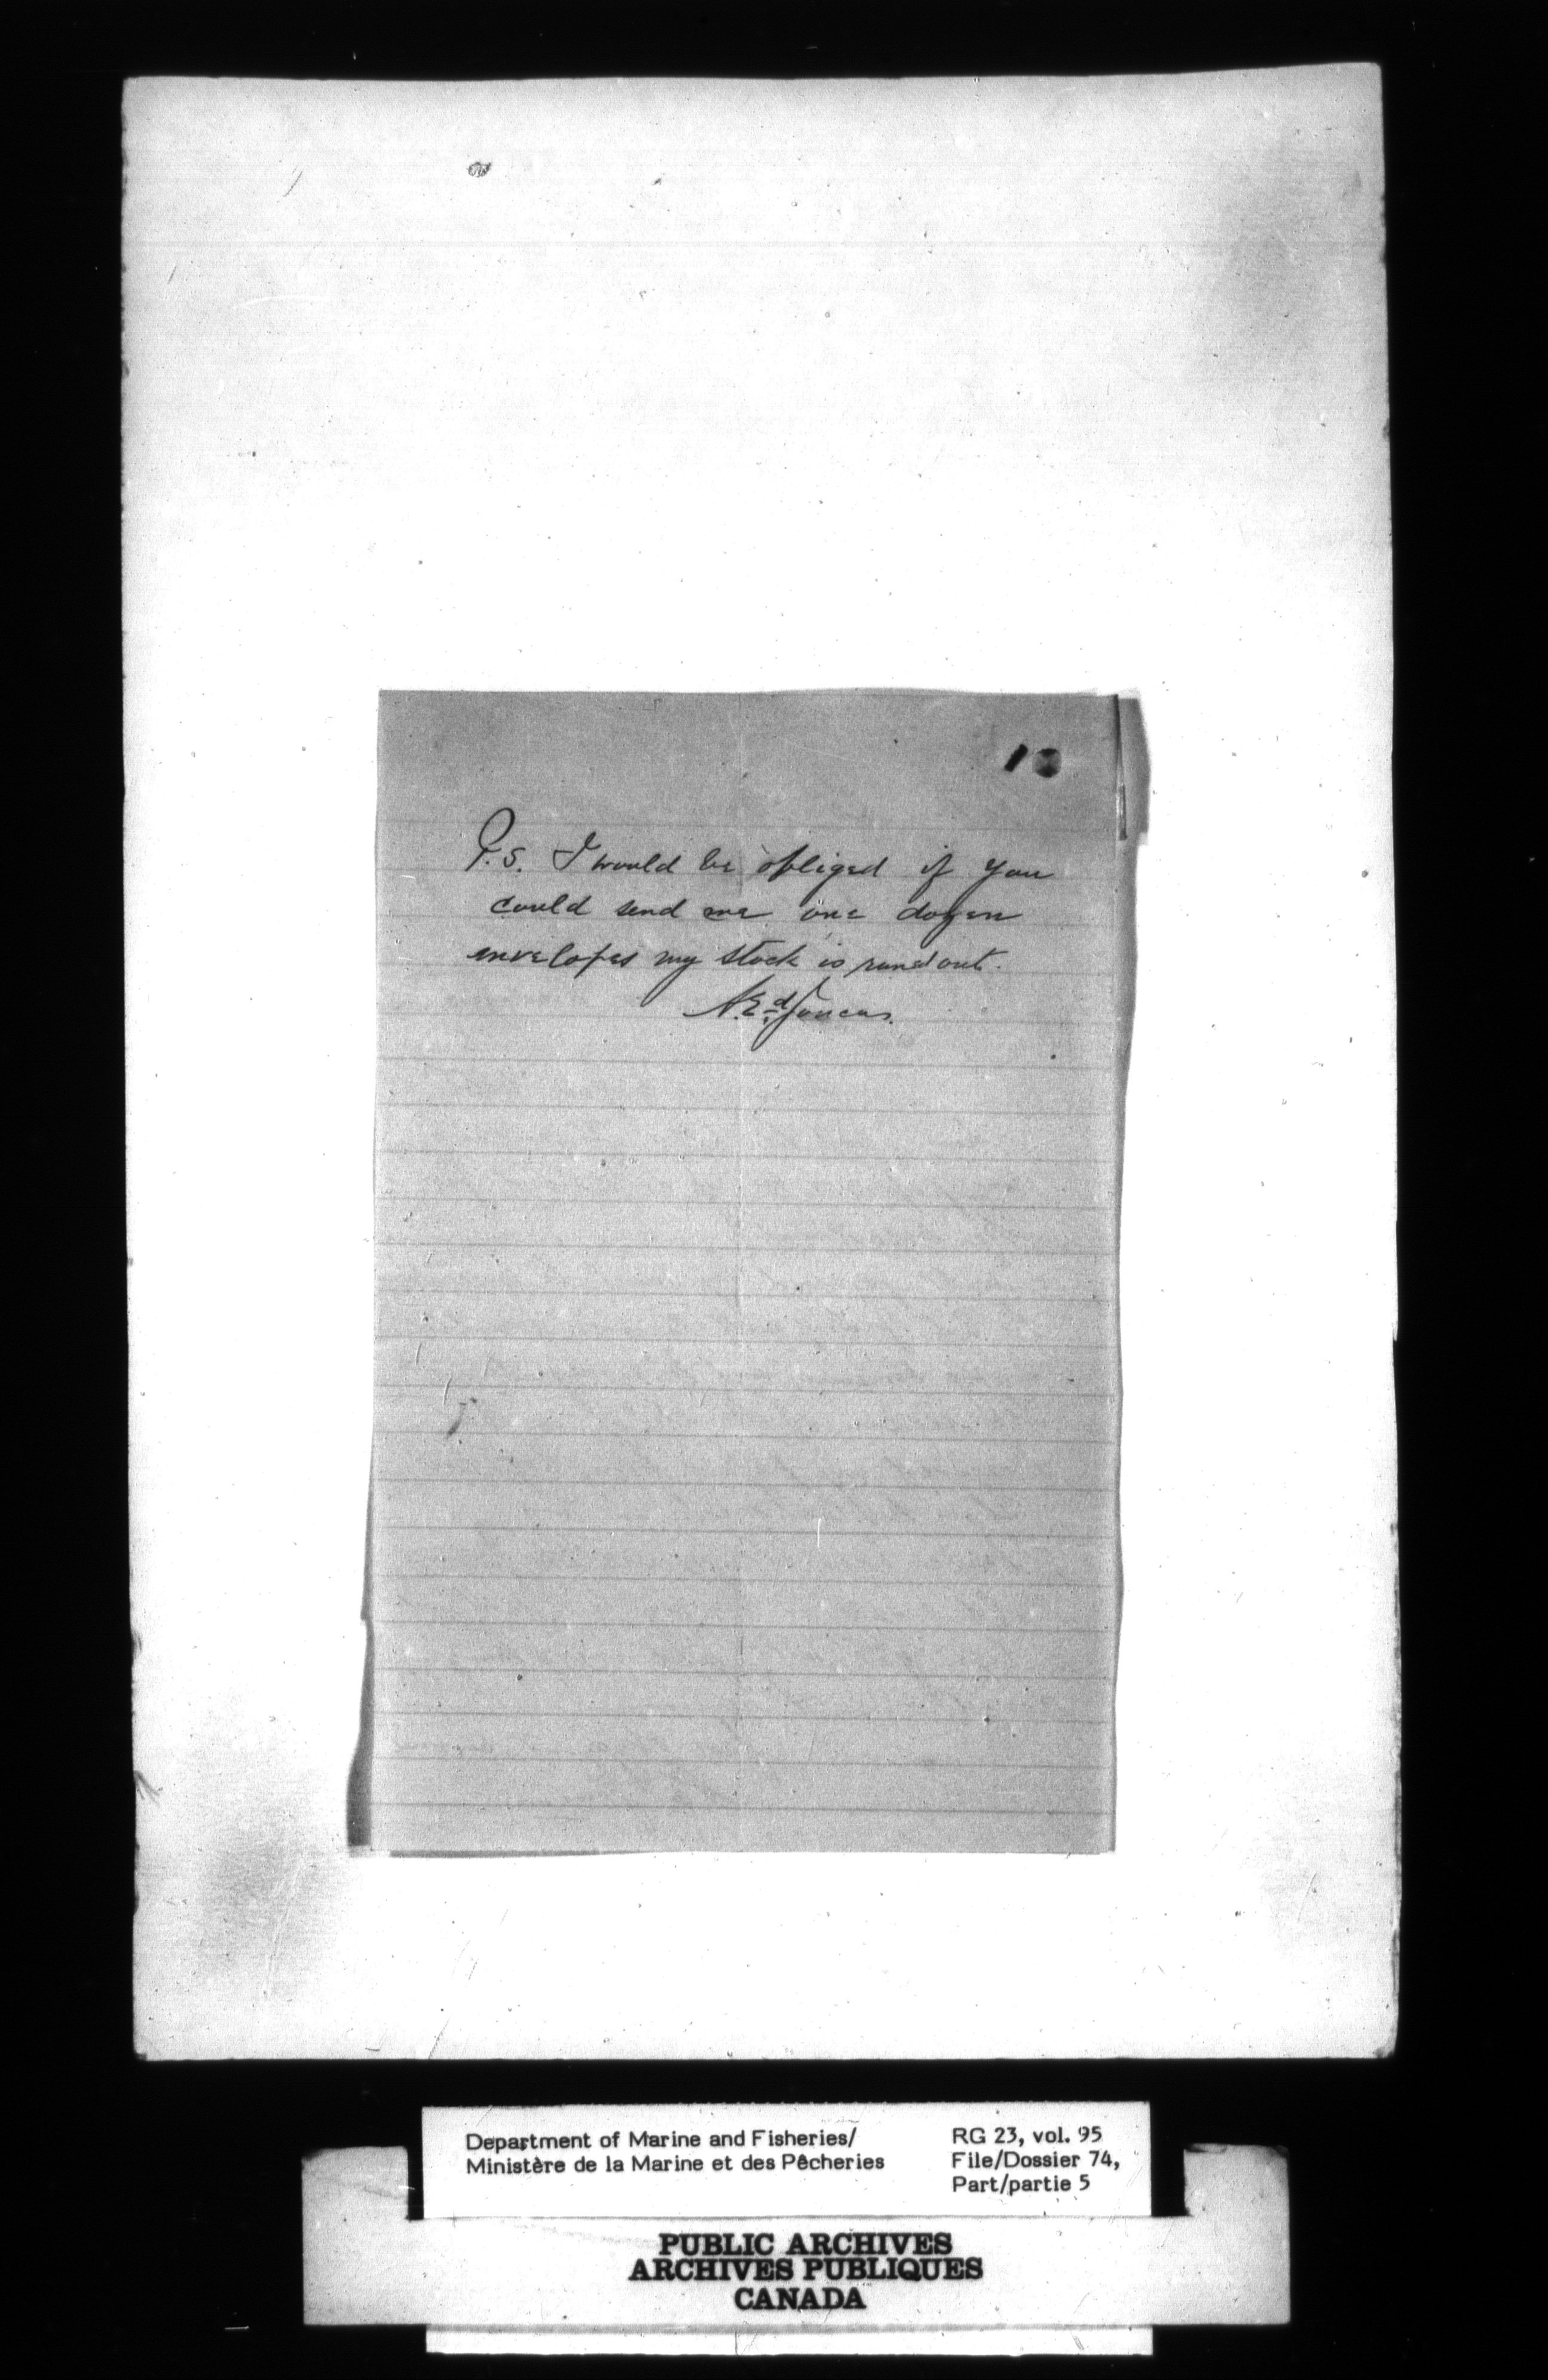 P.S. I would be obliged if you
could send me one dozen
envelopes my stock is run out.
Department of Marine and Fisheries/
Ministère de la Marine et des Pêcheries
RG 23, vol. 95
File/Dossier 74,
Part/partie 5
PUBLIC ARCHIVES
ARCHIVES PUBLIQUES
CANADA